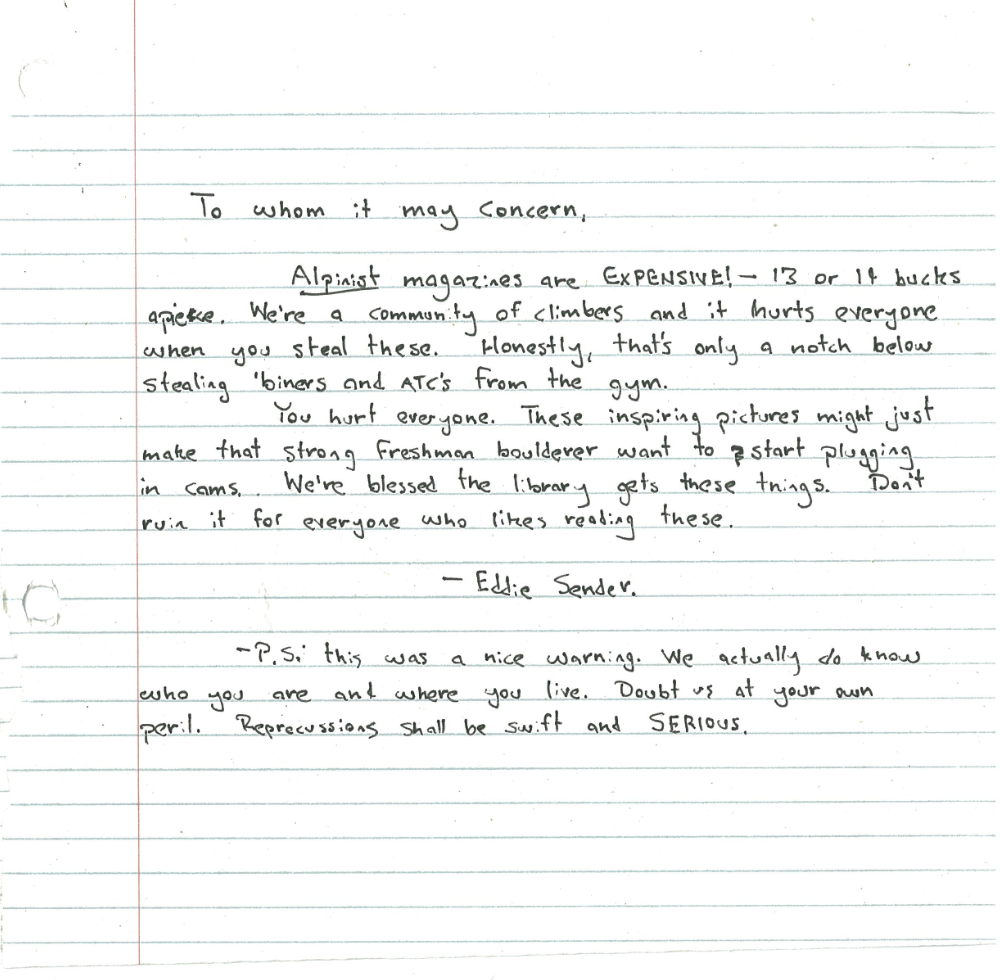 To whom it may concern,
Alpinist magazines are EXPENSIVE! – 13 or 14 bucks
apiece. We're a community of climbers and it hurts everyone
when you steal these. Honestly, that's only a notch below
stealing 'biners and ATC's from the gym.
You hurt everyone. These inspiring pictures might just
make that strong freshman boulderer want to start plugging
in cams. We're blessed the library gets these things. Don't
ruin it for everyone who likes reading these.
– Eddie Sender.
-P.S.: this was a nice warning. We actually do know
who you are and where you live. Doubt us at your own
peril. Reprecussions shall be swift and SERIOUS.